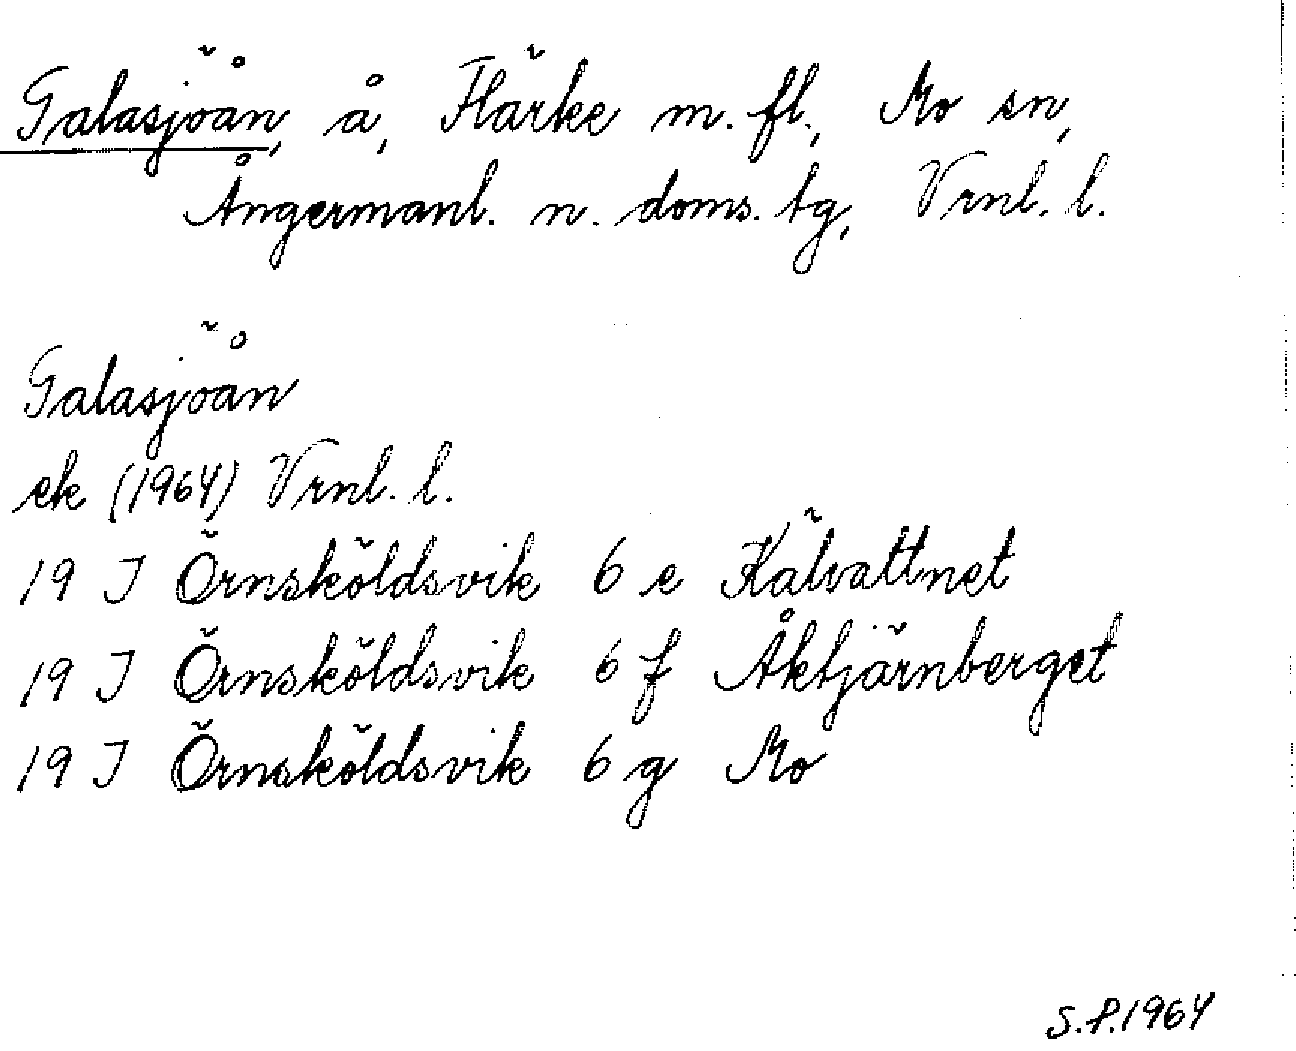 Galasjöån, å, Flärke m. fl., Mo sn,
Ångermanl. n. doms. tg, Vrnl. l.
Galasjöån
ek (1964) Vrnl. l.
19 J Örnsköldsvik 6 e Kälvattnet
19 J Örnsköldsvik 6 f Åktjärnberget
19 J Örnsköldsvik 6 g Mo
S.P.1964